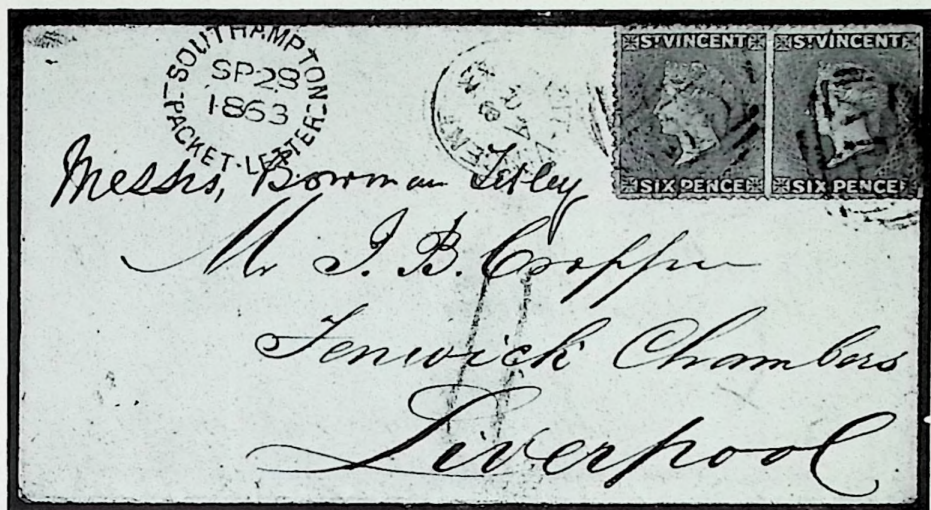 SOUTHAMPTON
PACKET-LETTER
SP 28
1863
ST VINCENT
SIX PENCE
ST VINCENT
SIX PENCE
Messrs, Bowman Tetley
Mr J. B. Cropper
Fenwick Chambers
Liverpool